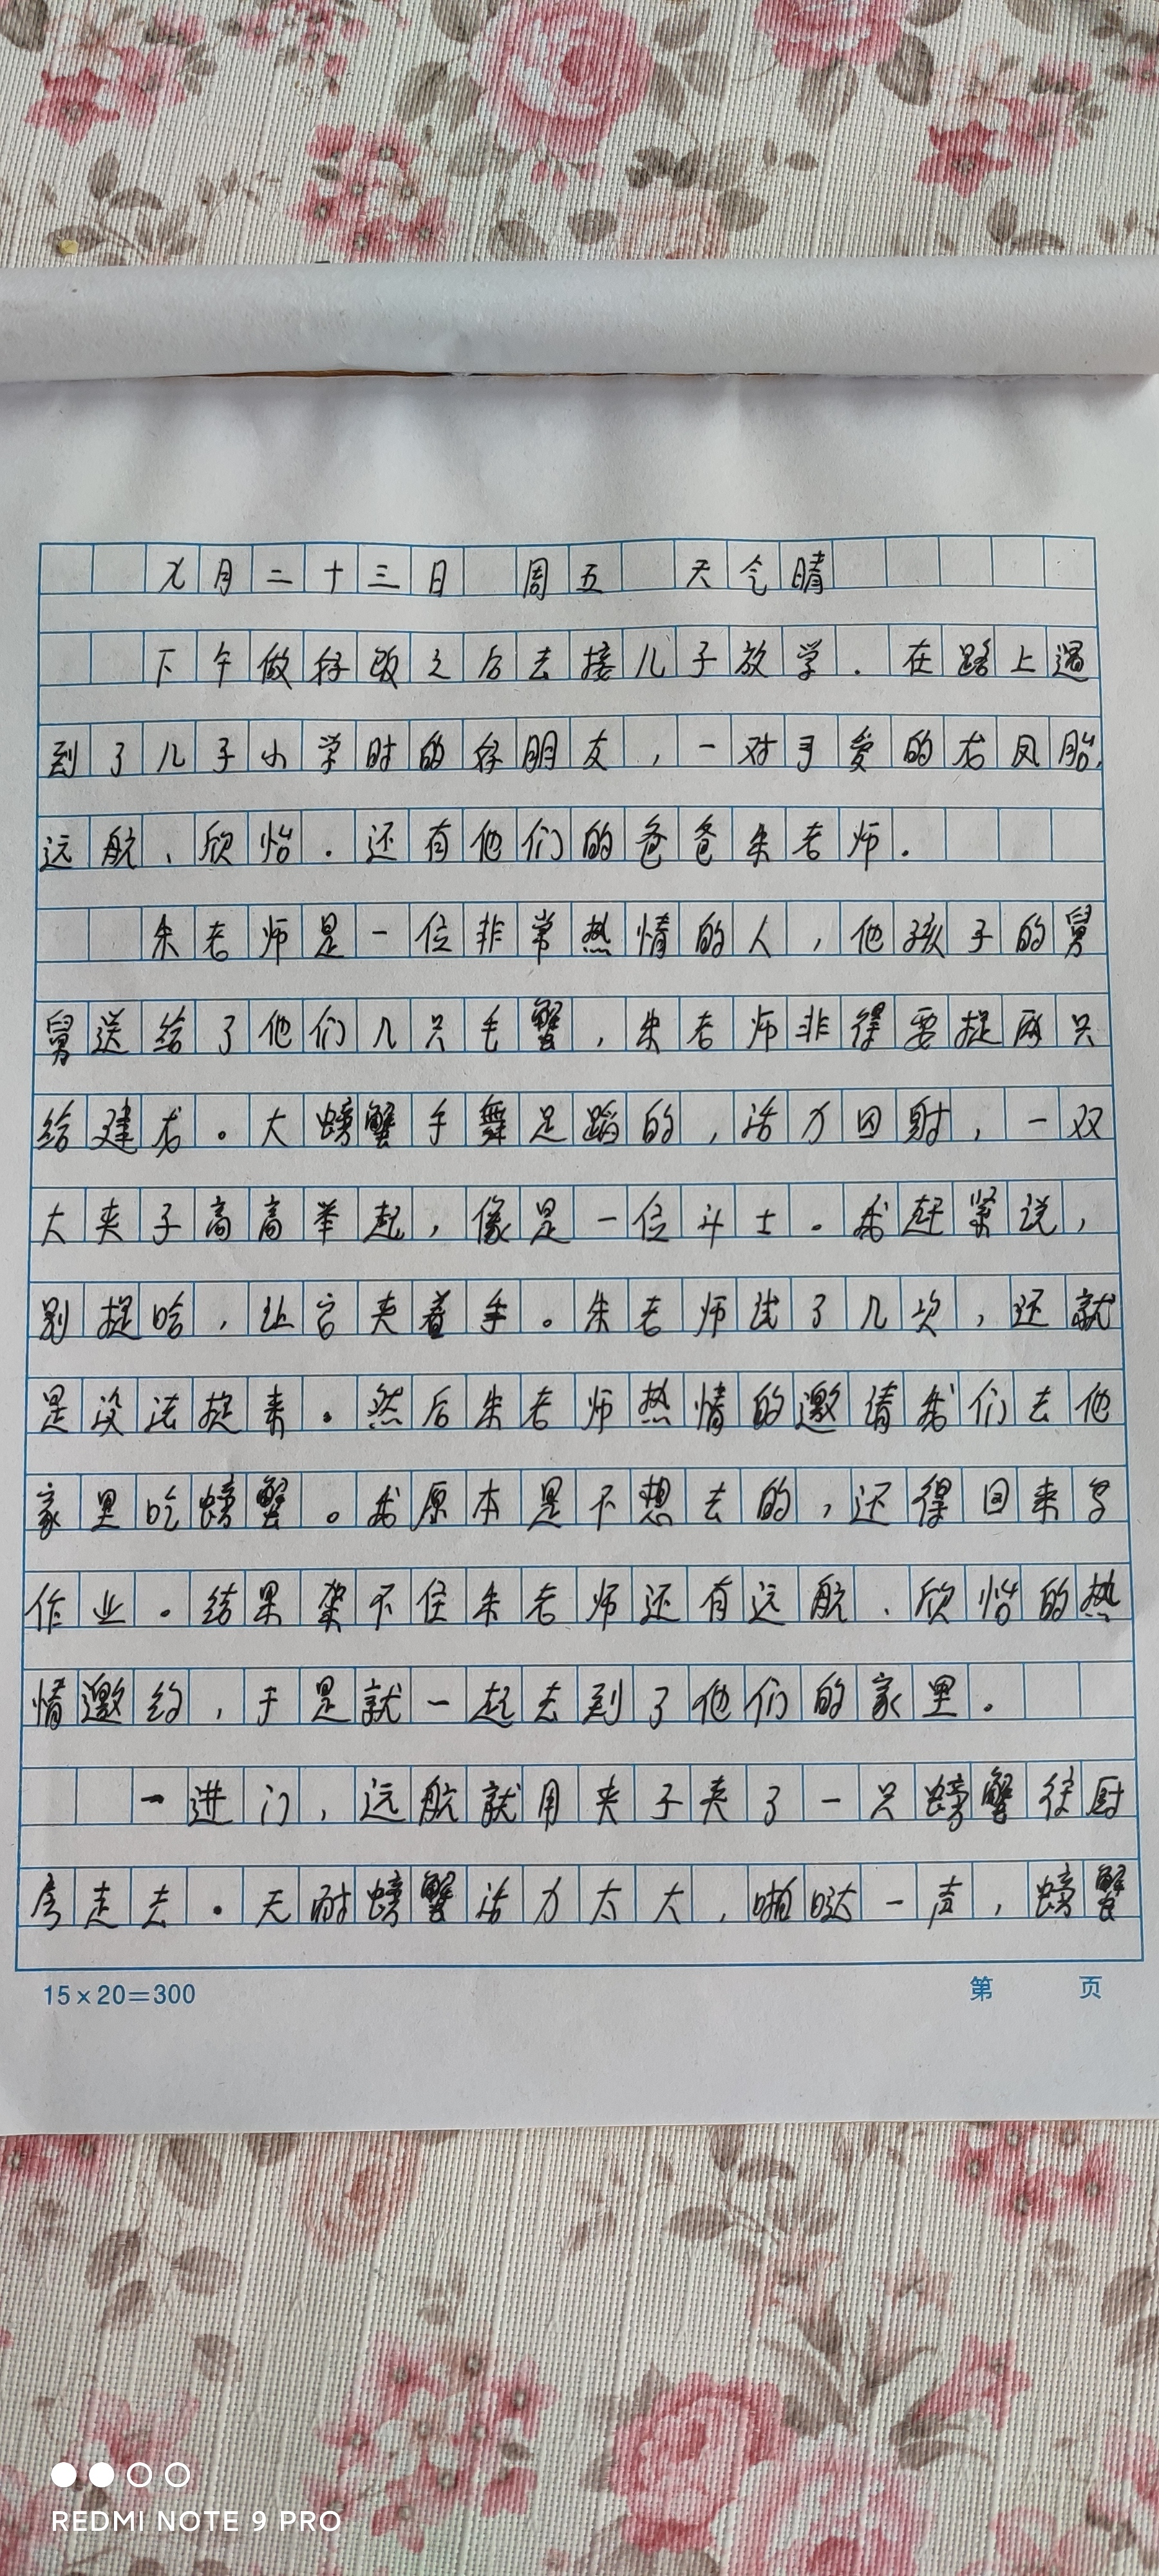 九月二十三日 周五 天气晴
下午做好饭之后去接儿子放学.在路上遇
到了儿子小学时的好朋友,一对可爱的龙凤胎,
远航、欣怡.还有他们的爸爸朱老师.
朱老师是一位非常热情的人,他孩子的舅
舅送给了他们几只毛蟹,朱老师非得要捉两只
给建龙。大螃蟹手舞足蹈的,活力四射,一双
大夹子高高举起,像是一位斗士。我赶紧说,
别捉哈,让它夹着手。朱老师试了几次,还就
是没法捉来。然后朱老师热情的邀请我们去他
家里吃螃蟹。我原本是不想去的,还得回来写
作业。结果架不住朱老师还有远航、欣怡的热
情邀约,于是就一起去到了他们的家里。
一进门,远航就用夹子夹了一只螃蟹往厨
房走去.无耐螃蟹活力太大,啪哒一声,螃蟹
15×20=300 第 页
REDMI NOTE 9 PRO